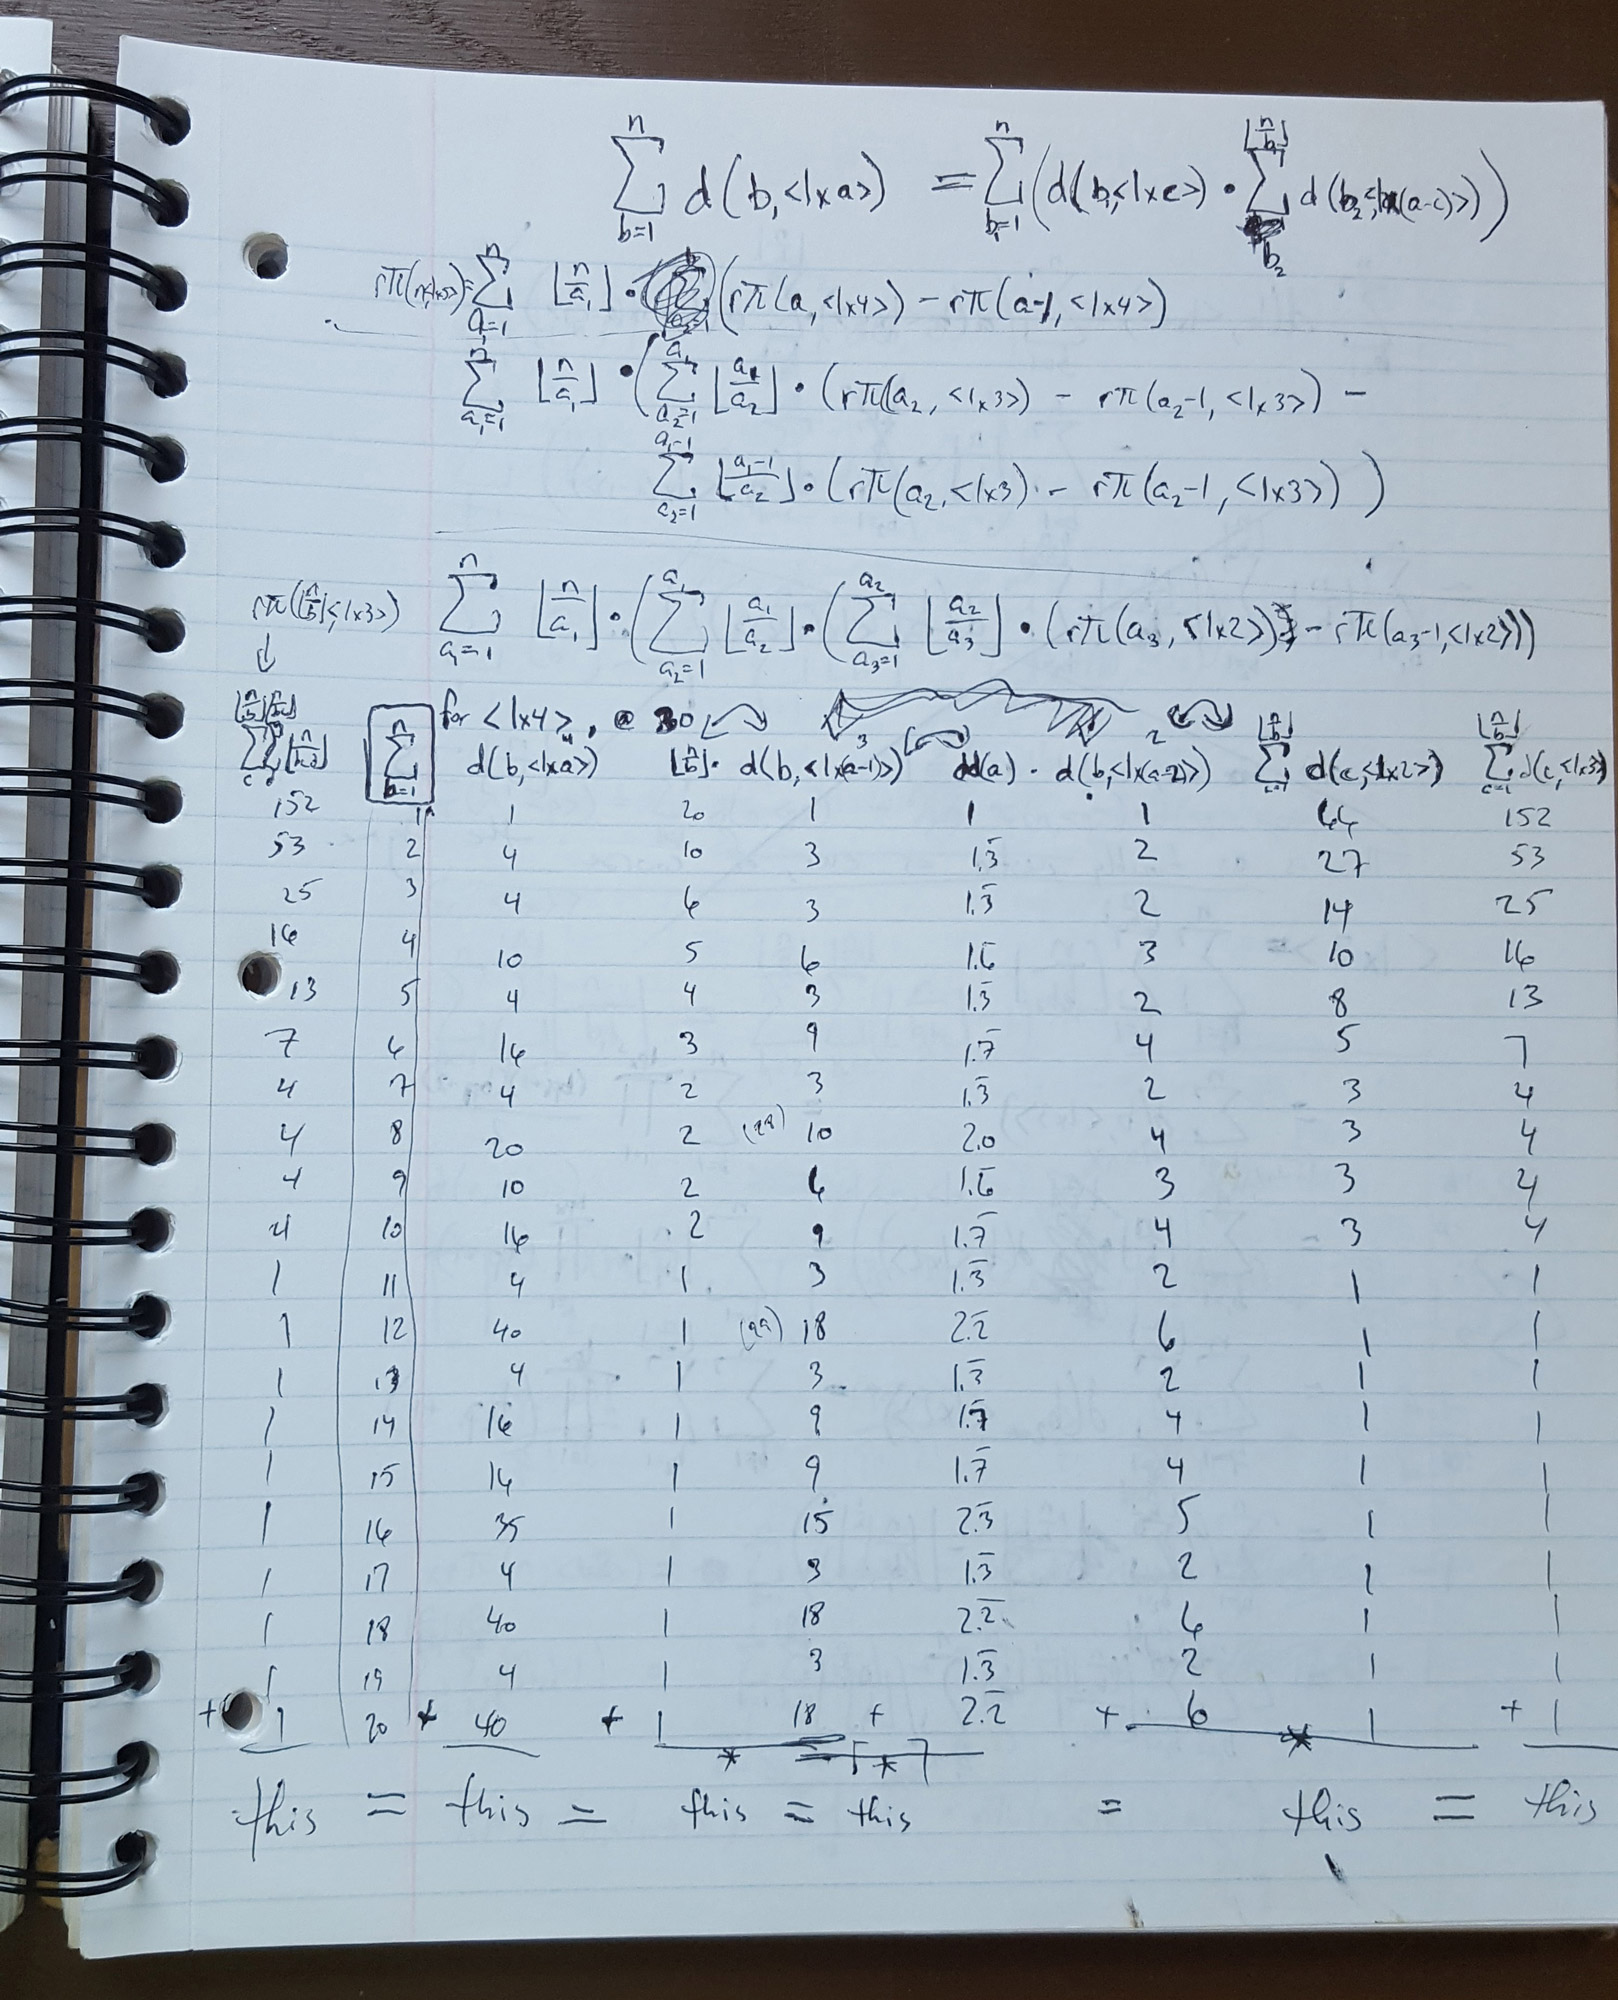 n n ⌊n/b₁⌋
∑ d(b,<1x a>) = ∑ (d(b₁<1x c>) • ∑ d(b₂<1x(a-c)>))
b=1 b₁=1 b₂
n
rπ(n<1x3>) = ∑ ⌊n/a₁⌋ • (rπ(a,<1x4>) - rπ(a-1,<1x4>)
a₁=1
n a₁
∑ ⌊n/a₁⌋ • (∑ ⌊a₁/a₂⌋ • (rπ(a₂,<1x3) - rπ(a₂-1,<1x3>) -
a₁=1 a₂=1
a₁-1
∑ ⌊a₁-1/a₂⌋ • (rπ(a₂,<1x3) - rπ(a₂-1,<1x3>))
a₂=1
n a₁ a₂
rπ(⌊n/b⌋<1x3>) ∑ ⌊n/a₁⌋ • (∑ ⌊a₁/a₂⌋ • (∑ ⌊a₂/a₃⌋ • (rπ(a₃,<1x2>) - rπ(a₃-1,<1x2>))
↓ a₁=1 a₂=1 a₃=1
for <1x4>, @ 20
n 4 3 2 ⌊n/b⌋ ⌊n/b⌋
∑ d(b,<1xa>) ⌊n/b⌋• d(b,<1x(a-1)>) dd(a) • d(b,<1x(a-2)>) ∑ d(c,<1x2>) ∑ d(c,<1x3>)
b=1 c=1 c=1
152 1 1 20 1 1 1 66 152
53 2 4 10 3 1.3̅ 2 27 53
25 3 4 6 3 1.3̅ 2 14 25
16 4 10 5 6 1.6̅ 3 10 16
13 5 4 4 3 1.3̅ 2 8 13
7 6 16 3 9 1.7̅ 4 5 7
4 7 4 2 3 1.3̅ 2 3 4
4 8 20 2 10 2.0 4 3 4
4 9 10 2 6 1.6̅ 3 3 4
4 10 16 2 9 1.7̅ 4 3 4
1 11 4 1 3 1.3̅ 2 1 1
1 12 40 1 18 2.2̅ 6 1 1
1 13 4 1 3 1.3̅ 2 1 1
1 14 16 1 9 1.7̅ 4 1 1
1 15 16 1 9 1.7̅ 4 1 1
1 16 35 1 15 2.3̅ 5 1 1
1 17 4 1 3 1.3̅ 2 1 1
1 18 40 1 18 2.2̅ 6 1 1
1 19 4 1 3 1.3̅ 2 1 1
+ 1 20 + 40 + 1 18 + 2.2̅ + 6 1 + 1
* ⌈*⌉ *
this = this = this = this = this = this